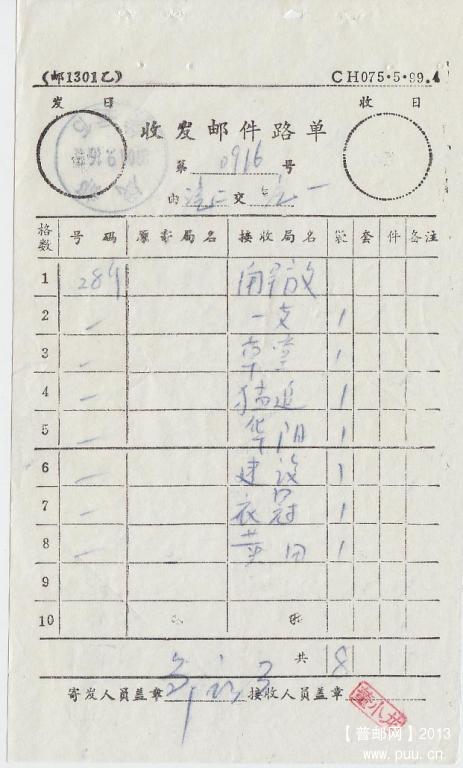 (邮1301乙) CH075·5·99.4
发 日 收 日
收发邮件路单
第 0916 号
由 交
格数 号 码 原寄局名 接收局名 袋 套 件 备注
1 289
2 一 一支 1
3 一 草堂 1
4 一 1
5 一 华阳 1
6 一 建设 1
7 一 衣冠 1
8 一 1
9
10
共 8
寄发人员盖章 接收人员盖章
【普邮网】2013
www.puu.cn